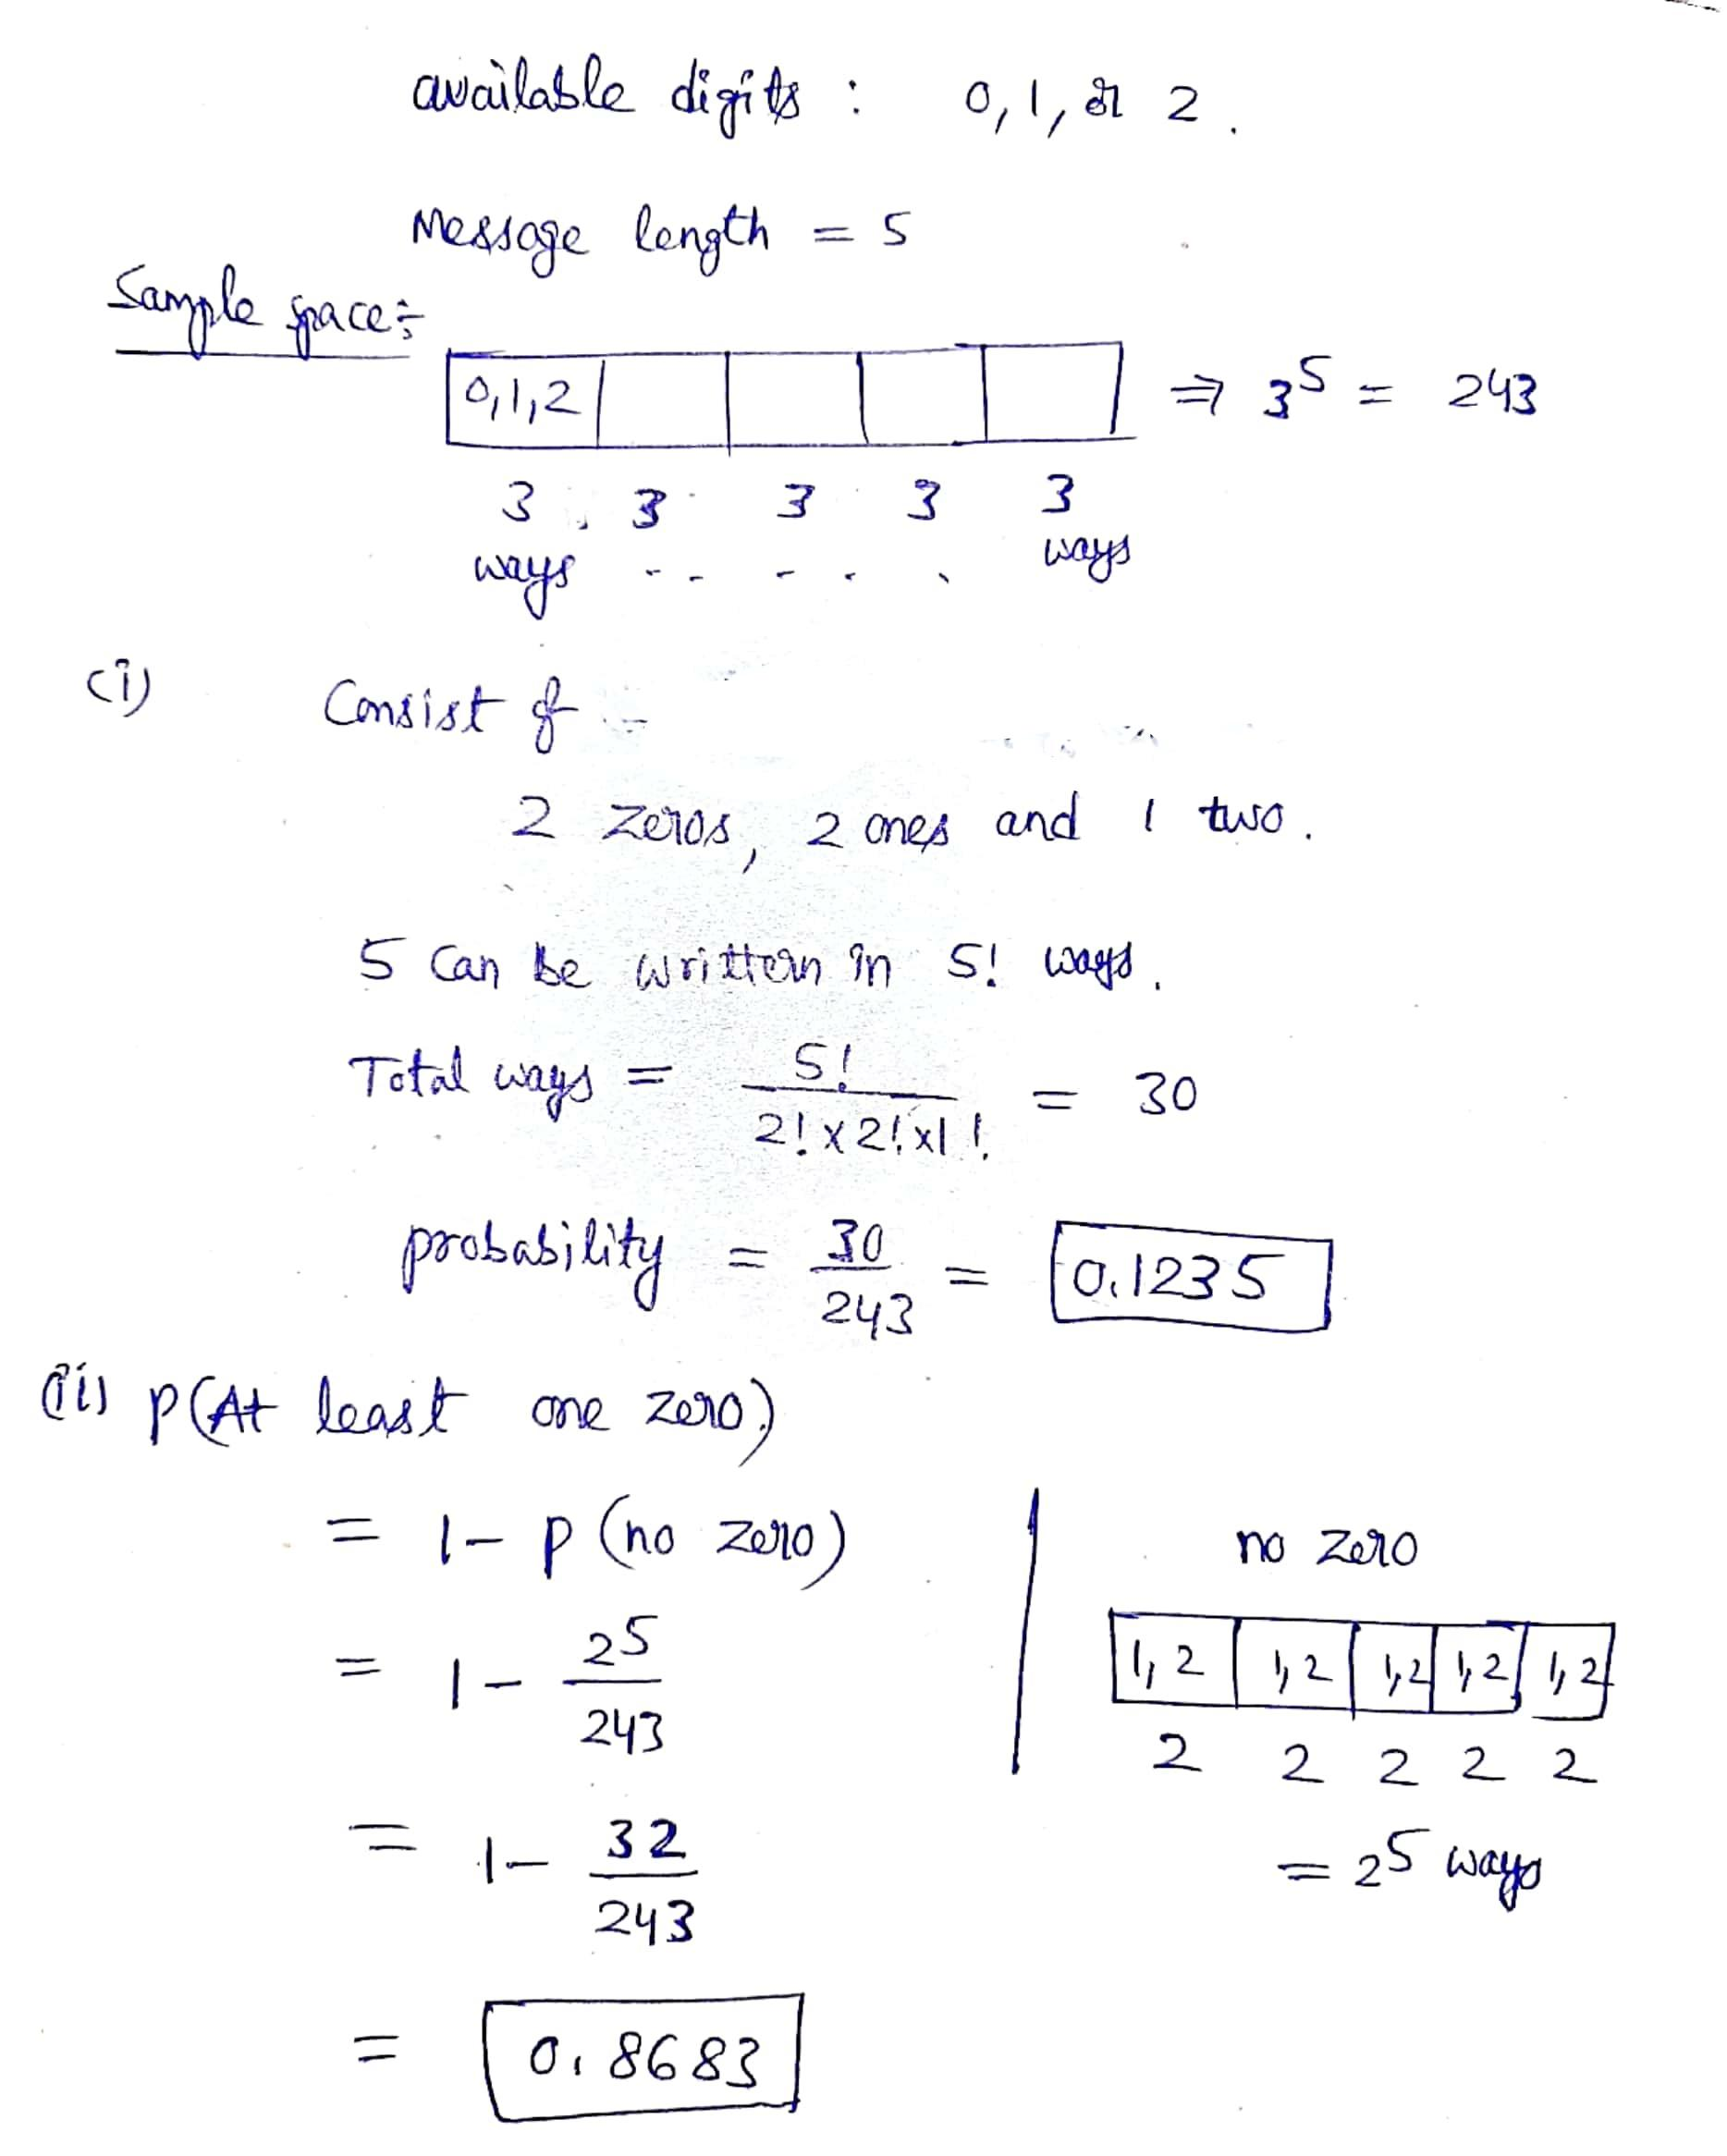 available digits : 0, 1, or 2.
Message length = 5
Sample space:
0,1,2 ⇒ 3^5 = 243
3 3 3 3 3
ways -- - . . ways
(i) Consist of
2 zeros, 2 ones and 1 two.
5 can be written in 5! ways.
Total ways = 5! / 2! x 2! x 1! = 30
probability = 30/243 = 0.1235
(ii) P(At least one zero)
= 1 - P (no zero)
= 1 - 2^5/243
= 1 - 32/243
= 0.8683
no zero
1,2 1,2 1,2 1,2 1,2
2 2 2 2 2
= 2^5 ways